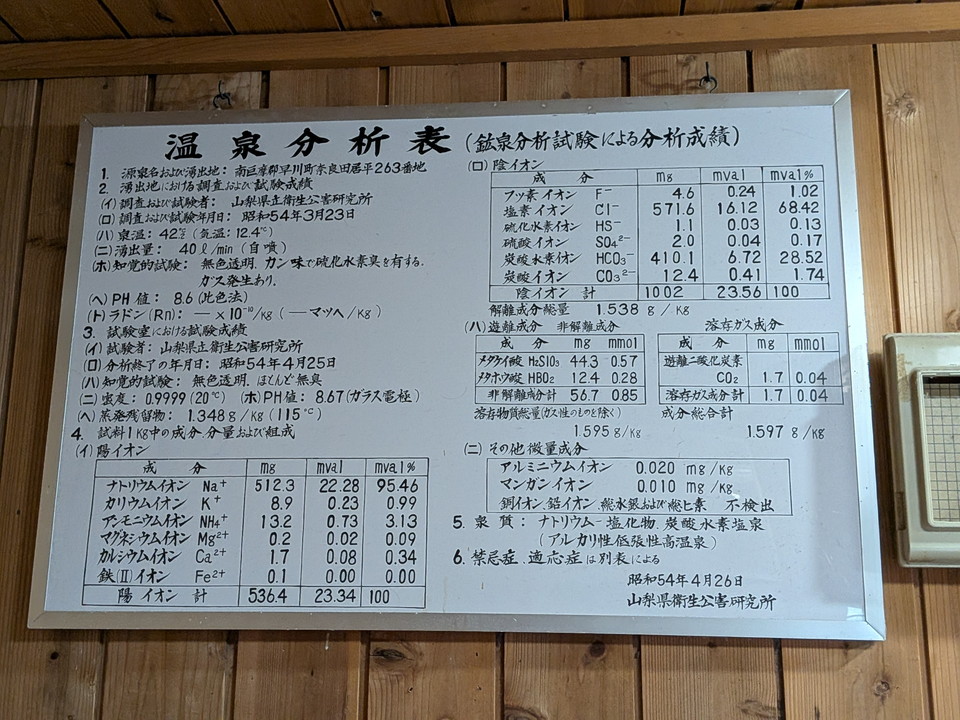 温泉分析表(鉱泉分析試験による分析成績)
1. 源泉名および湧出地: 南巨摩郡早川町奈良田居平263番地
2. 湧出地における調査および試験成績
(イ)調査および試験者: 山梨県立衛生公害研究所
(ロ)調査および試験年月日: 昭和54年3月23日
(ハ)泉温: 42℃ (気温: 12.4℃)
(ニ)湧出量: 40 ℓ/min (自噴)
(ホ)知覚的試験: 無色透明、カン味で硫化水素臭を有する.
ガス発生あり.
(ヘ)PH値: 8.6 (比色法)
(ト)ラドン(Rn): ― ×10⁻¹⁰/kg ( ―マッヘ/kg )
3. 試験室における試験成績
(イ)試験者: 山梨県立衛生公害研究所
(ロ)分析終了の年月日: 昭和54年4月25日
(ハ)知覚的試験: 無色透明、ほとんど無臭
(ニ)密度: 0.9999 (20℃) (ホ)PH値: 8.67(ガラス電極)
(ヘ)蒸発残留物: 1.348g/kg (115℃)
4. 試料1kg中の成分、分量および組成
(イ)陽イオン
成分 mg mval mval%
ナトリウムイオン Na⁺ 512.3 22.28 95.46
カリウムイオン K⁺ 8.9 0.23 0.99
アンモニウムイオン NH₄⁺ 13.2 0.73 3.13
マグネシウムイオン Mg²⁺ 0.2 0.02 0.09
カルシウムイオン Ca²⁺ 1.7 0.08 0.34
鉄(Ⅱ)イオン Fe²⁺ 0.1 0.00 0.00
陽イオン計 536.4 23.34 100
(ロ)陰イオン
成分 mg mval mval%
フッ素イオン F⁻ 4.6 0.24 1.02
塩素イオン Cl⁻ 571.6 16.12 68.42
硫化水素イオン HS⁻ 1.1 0.03 0.13
硫酸イオン SO₄²⁻ 2.0 0.04 0.17
炭酸水素イオン HCO₃⁻ 410.1 6.72 28.52
炭酸イオン CO₃²⁻ 12.4 0.41 1.74
陰イオン計 1002 23.56 100
解離成分総量 1.538 g/kg
(ハ)遊離成分 非解離成分
成分 mg mmol
メタケイ酸 H₂SiO₃ 44.3 0.57
メタホウ酸 HBO₂ 12.4 0.28
非解離成分計 56.7 0.85
溶存物質総量(ガス性のものを除く)
1.595 g/kg
溶存ガス成分
成分 mg mmol
遊離二酸化炭素
CO₂ 1.7 0.04
溶存ガス成分計 1.7 0.04
成分総合計
1.597 g/kg
(ニ)その他微量成分
アルミニウムイオン 0.020 mg/kg
マンガンイオン 0.010 mg/kg
銅イオン、鉛イオン、総水銀および総ヒ素 不検出
5. 泉質: ナトリウム-塩化物、炭酸水素塩泉
(アルカリ性低張性高温泉)
6. 禁忌症、適応症は別表による
昭和54年4月26日
山梨県衛生公害研究所